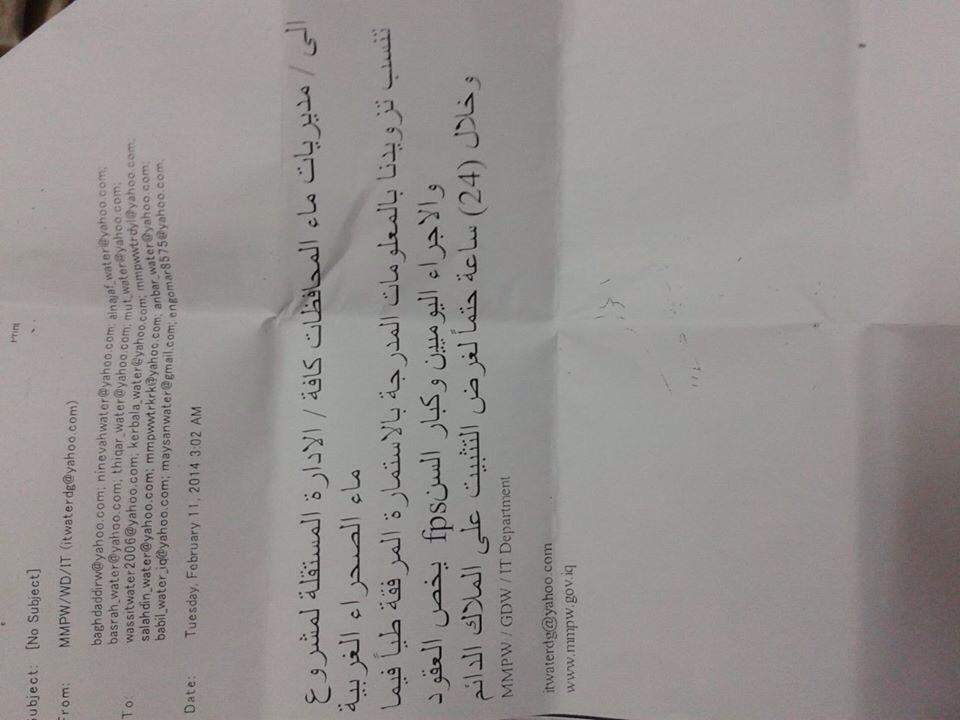 Subject: [No Subject]
From: MMPW/WD/IT (itwaterdg@yahoo.com)
baghdaddirw@yahoo.com; ninevahwater@yahoo.com; alnajaf_water@yahoo.com;
basrah_water@yahoo.com; thiqar_water@yahoo.com; mut_water@yahoo.com;
To: wassitwater2006@yahoo.com; kerbala_water@yahoo.com; mmpwwtrdyl@yahoo.com;
salahdin_water@yahoo.com; mmpwwtrkrk@yahoo.com; anbar_water@yahoo.com;
babil_water_iq@yahoo.com; maysanwater@gmail.com; engomar8575@yahoo.com,
Date: Tuesday, February 11, 2014 3:02 AM
الى / مديريات ماء المحافظات كافة / الادارة المستقلة لمشروع
ماء الصحراء الغربية
تنسب تزويدنا بالمعلومات المدرجة بالاستمارة المرفقة طياً فيما
يخص العقود fps والاجراء اليوميين وكبار السن
وخلال (24) ساعة حتماً لغرض التثبيت على الملاك الدائم
MMPW / GDW / IT Department
itwaterdg@yahoo.com
www.mmpw.gov.iq